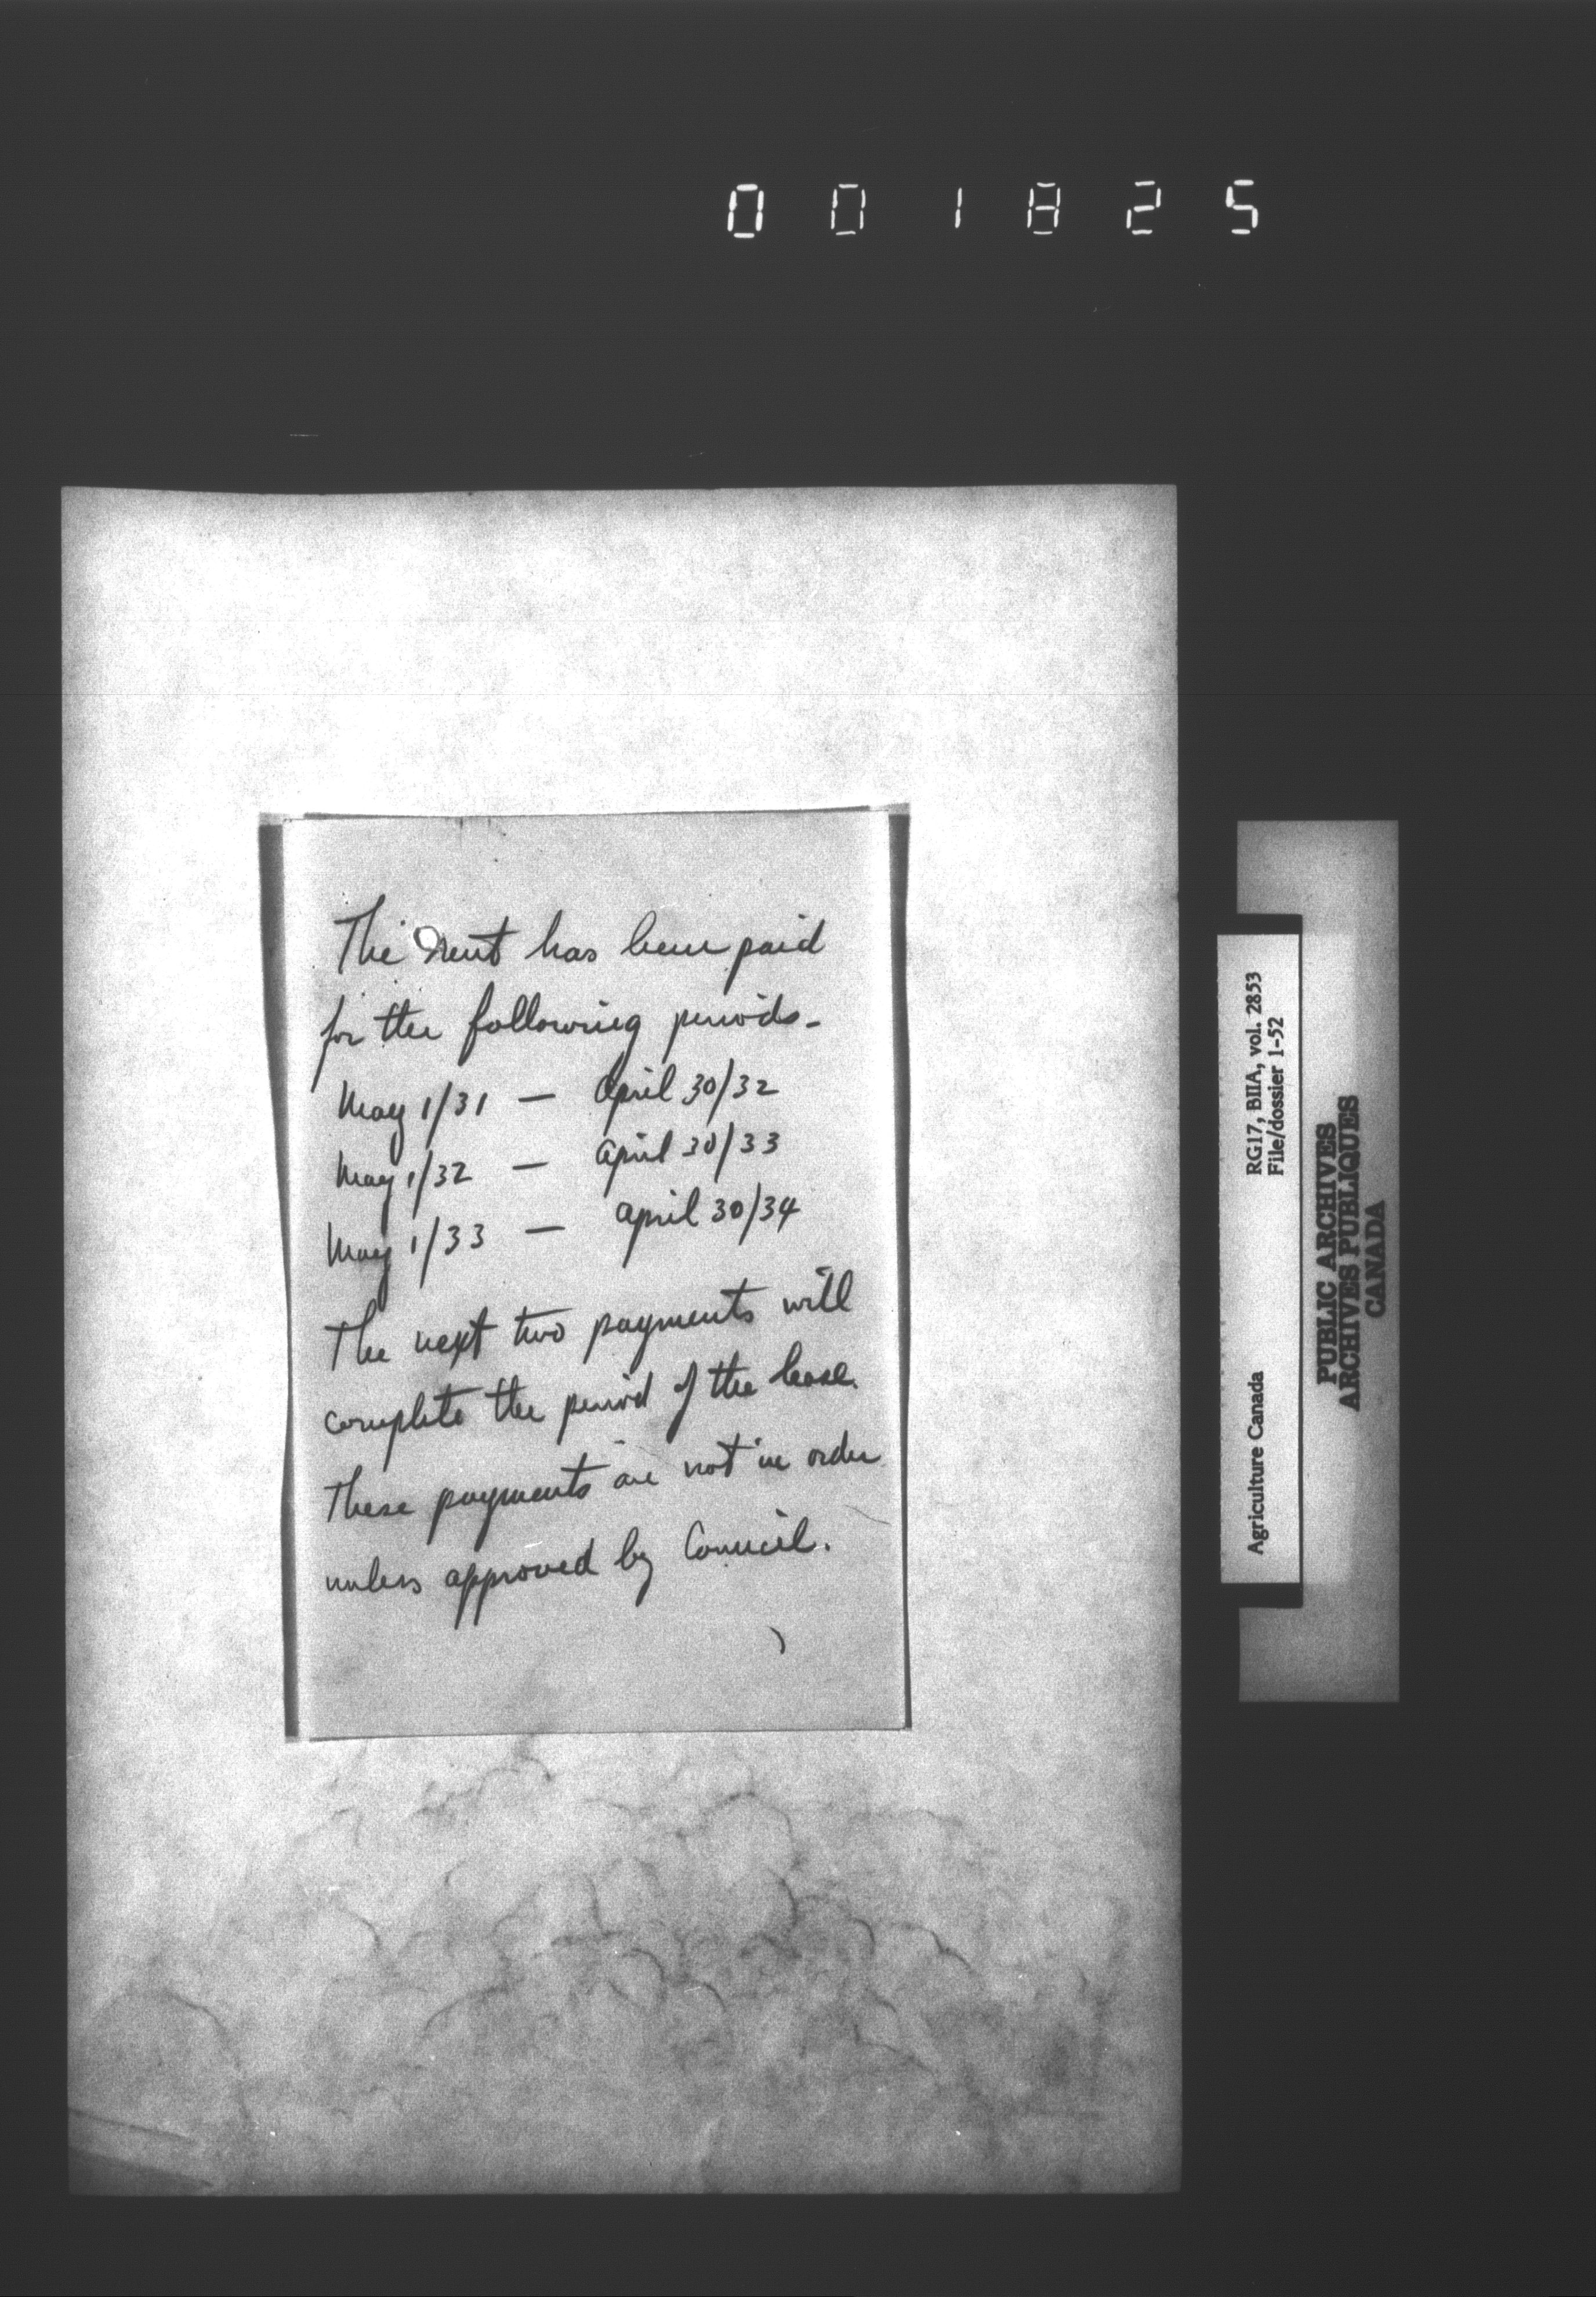 001825
The rent has been paid
for the following periods-
May 1/31 — April 30/32
May 1/32 — April 30/33
May 1/33 — April 30/34
The next two payments will
complete the period of the lease.
These payments are not in order
unless approved by Council.
Agriculture Canada RG17, BIIA, vol. 2853
File/dossier 1-52
PUBLIC ARCHIVES
ARCHIVES PUBLIQUES
CANADA